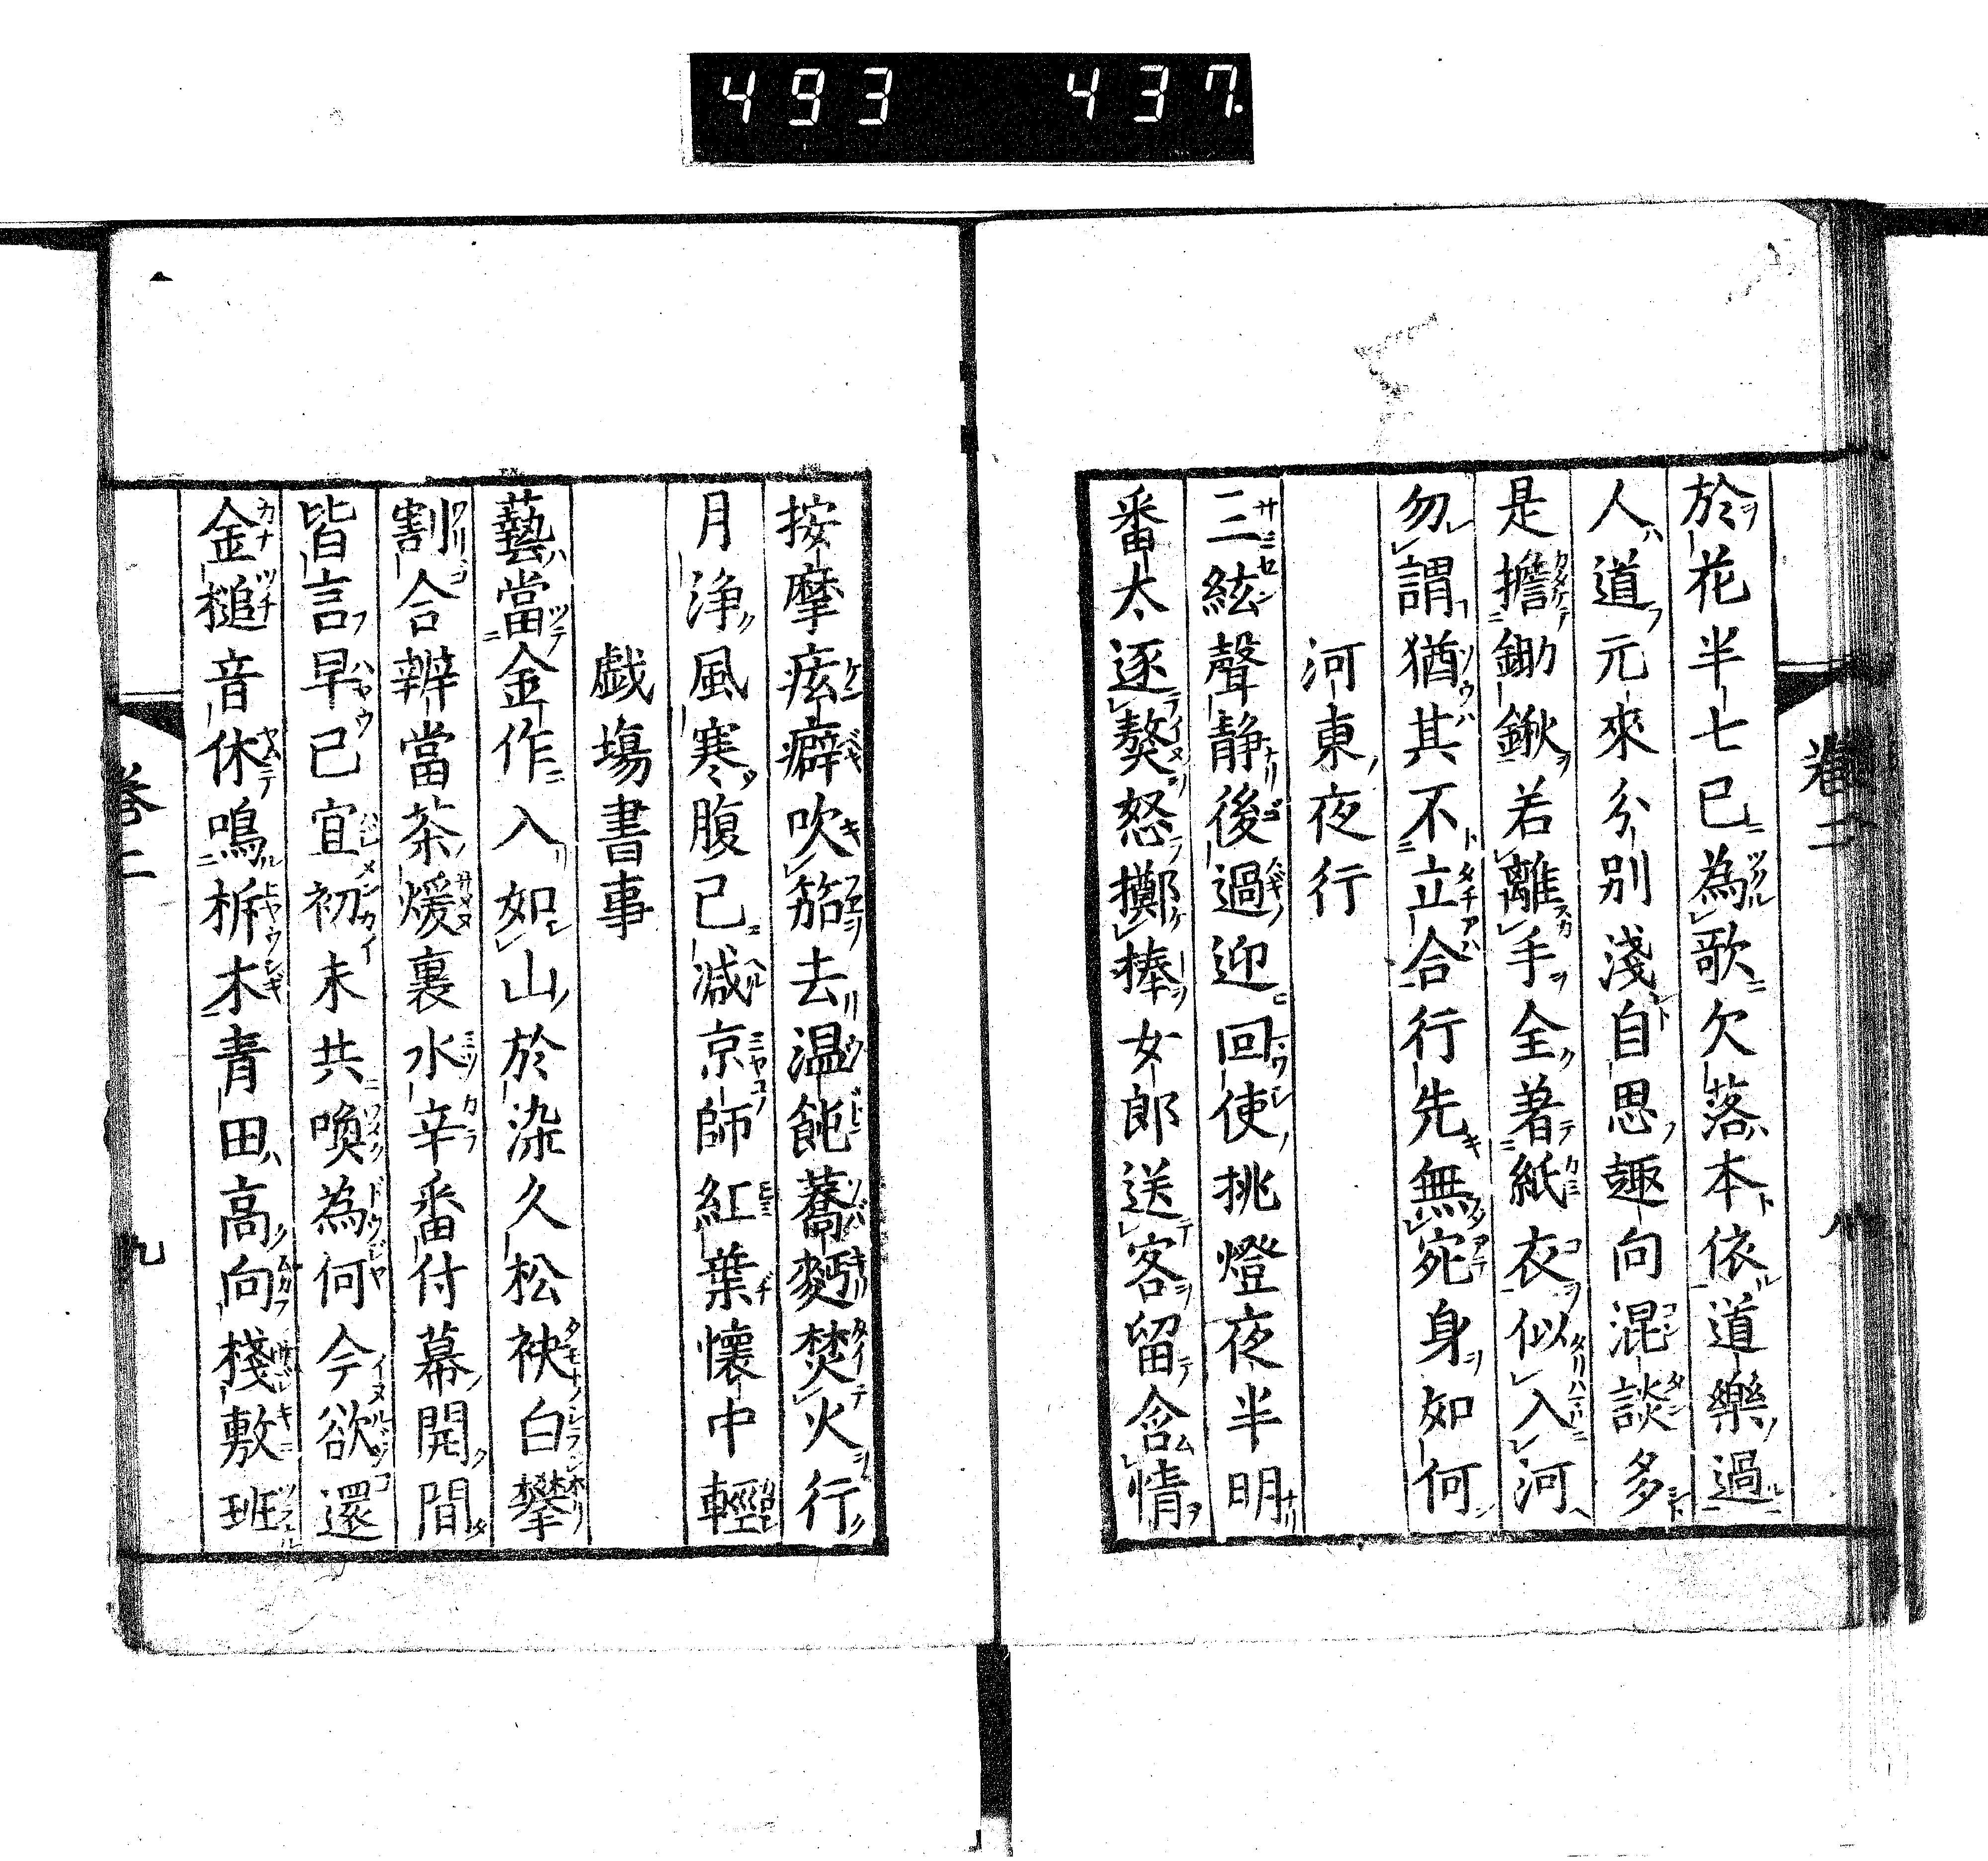 493 437
於花半七已為歌欠落本依道樂過
人道元來分別淺自思趣向混談多
是擔鋤鍬若離手全著紙衣似入河
勿謂猶其不立合行先無宛身如何
河東夜行
三絃聲静後過迎回使挑燈夜半明
番太逐獒怒擲棒女郎送客留含情
卷二
八
按摩痃癖吹笳去温飩蕎麪焚火行
月浄風寒腹已減京師紅葉懷中輕
戯場書事
藝當金作入如山於染久松袂白攀
割合辨當茶煖裏水辛番付幕開間
皆言早已宜初未共喚為何今欲還
金槌音休鳴柝木青田高向棧敷班
卷二
九